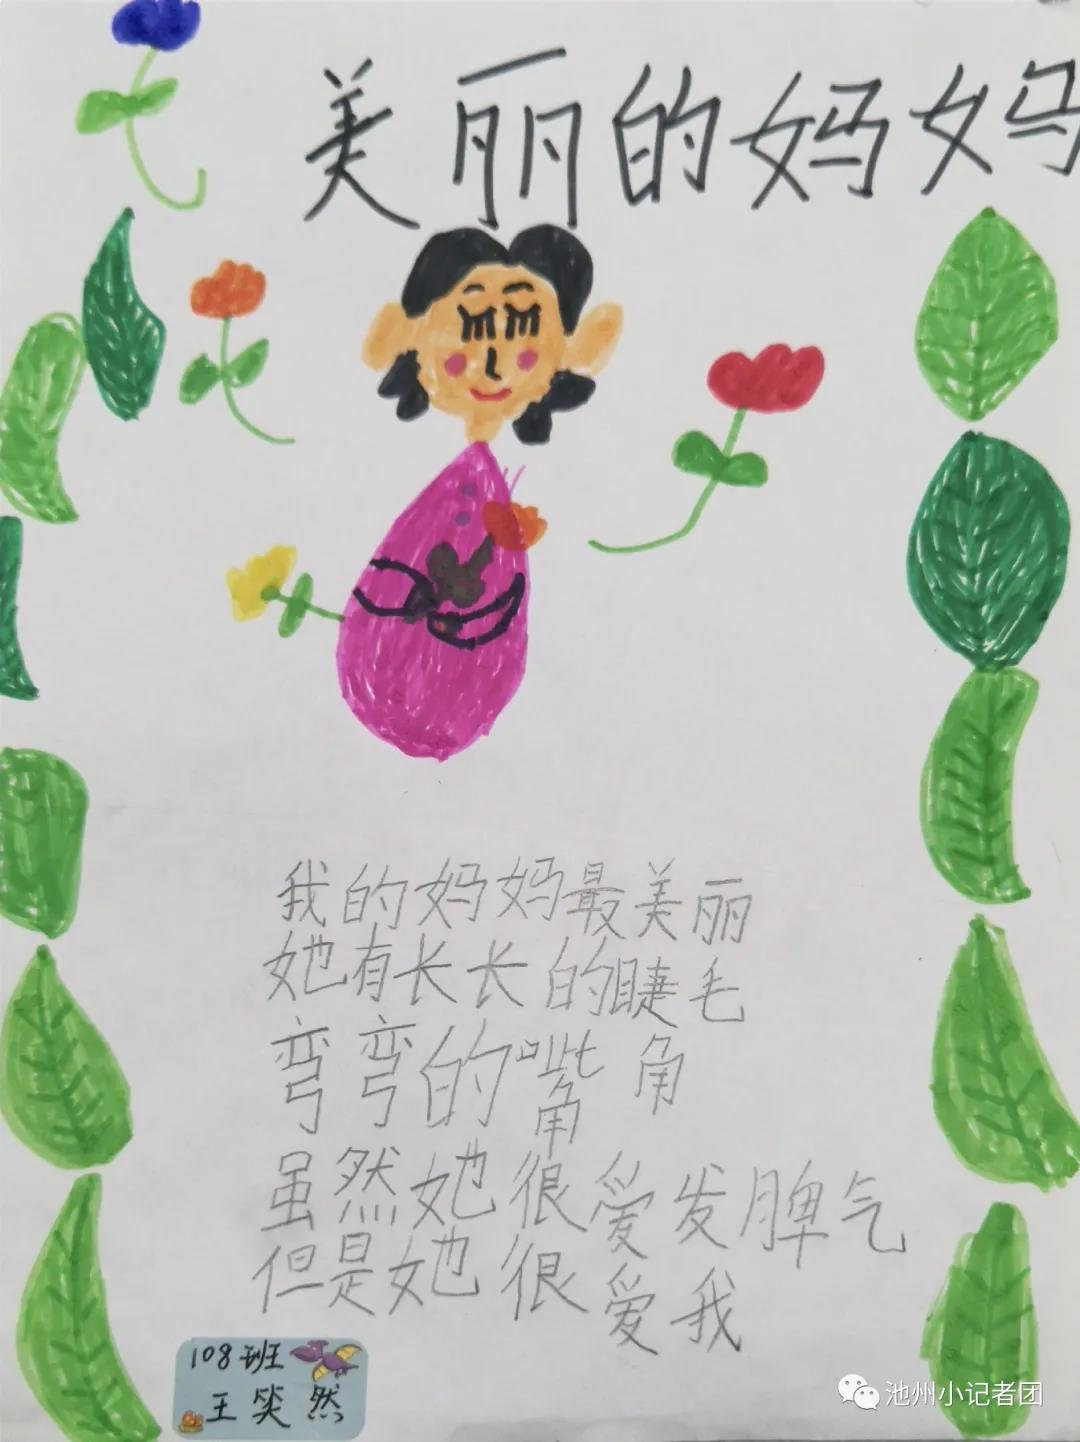 美丽的妈妈
我的妈妈最美丽
她有长长的睫毛
弯弯的嘴角
虽然她很爱发脾气
但是她很爱我
108班
王笑然
池州小记者团